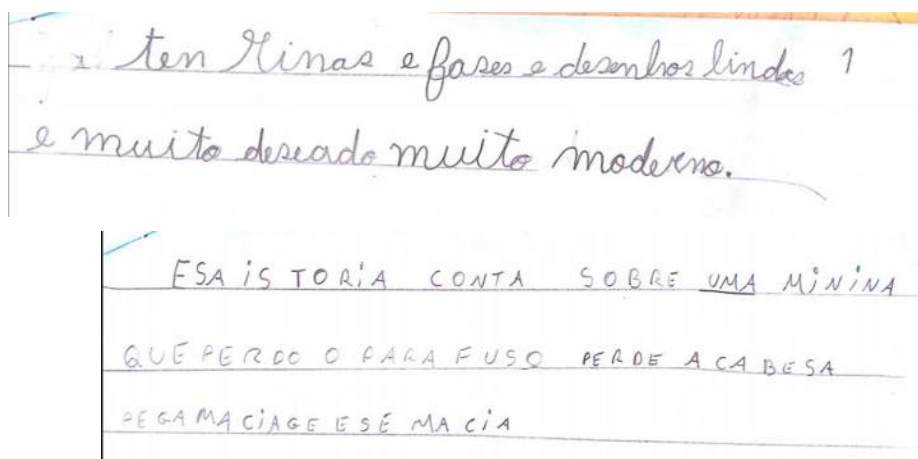 ten Rimas e fases e desenhos lindos 1
e muito deseado muito moderno.
ESA iS TORiA CONTA SOBRE UMA MiNiNA
QUE PERDO O PARA FUSO PERDE A CA BESA
PEGA MA CiAGE E SE MA CiA